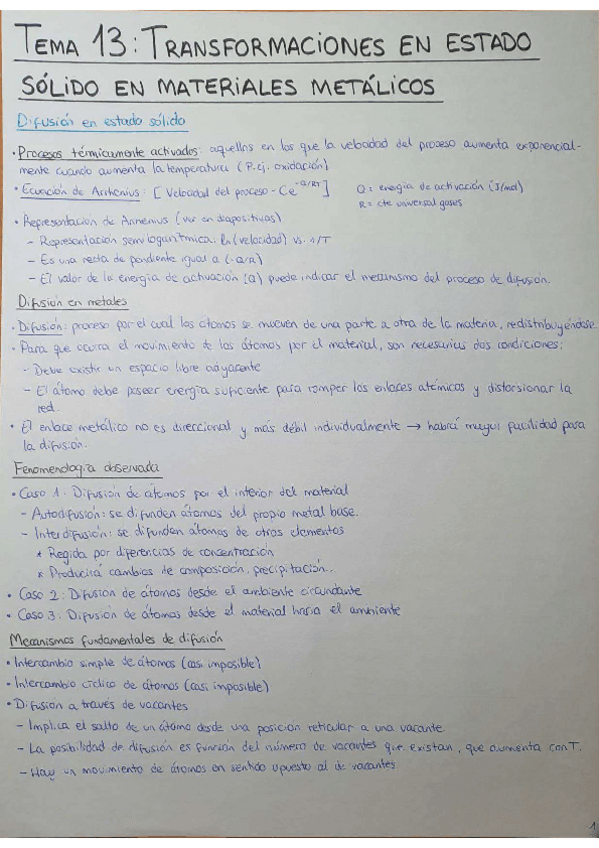 TEMA 13: TRANSFORMACIONES EN ESTADO
SÓLIDO EN MATERIALES METÁLICOS
Difusión en estado sólido
• Procesos térmicamente activados: aquellos en los que la velocidad del proceso aumenta exponencial-
mente cuando aumenta la temperatura (P.ej. oxidación)
• Ecuación de Arrhenius: [Velocidad del proceso - Ce^-Q/RT] Q = energía de activación (J/mol)
R = cte universal gases
• Representación de Arrhenius (ver en diapositivas)
- Representación semilogarítmica: ln(velocidad) vs. 1/T
- Es una recta de pendiente igual a (-Q/R)
- El valor de la energía de activación (Q) puede indicar el mecanismo del proceso de difusión.
Difusión en metales
• Difusión: proceso por el cual los átomos se mueven de una parte a otra de la materia, redistribuyéndose.
• Para que ocurra el movimiento de los átomos por el material, son necesarias dos condiciones:
- Debe existir un espacio libre adyacente
- El átomo debe poseer energía suficiente para romper los enlaces atómicos y distorsionar la
red.
• El enlace metálico no es direccional y más débil individualmente → habrá mayor facilidad para
la difusión.
Fenomenología observada
• Caso 1: Difusión de átomos por el interior del material
- Autodifusión: se difunden átomos del propio metal base.
- Interdifusión: se difunden átomos de otros elementos
* Regida por diferencias de concentración
* Producirá cambios de composición, precipitación...
• Caso 2: Difusión de átomos desde el ambiente circundante
• Caso 3: Difusión de átomos desde el material hacia el ambiente
Mecanismos fundamentales de difusión
• Intercambio simple de átomos (casi imposible)
• Intercambio cíclico de átomos (casi imposible)
• Difusión a través de vacantes
- Implica el salto de un átomo desde una posición reticular a una vacante.
- La posibilidad de difusión es función del número de vacantes que existan, que aumenta con T.
- Hay un movimiento de átomos en sentido opuesto al de vacantes.
1